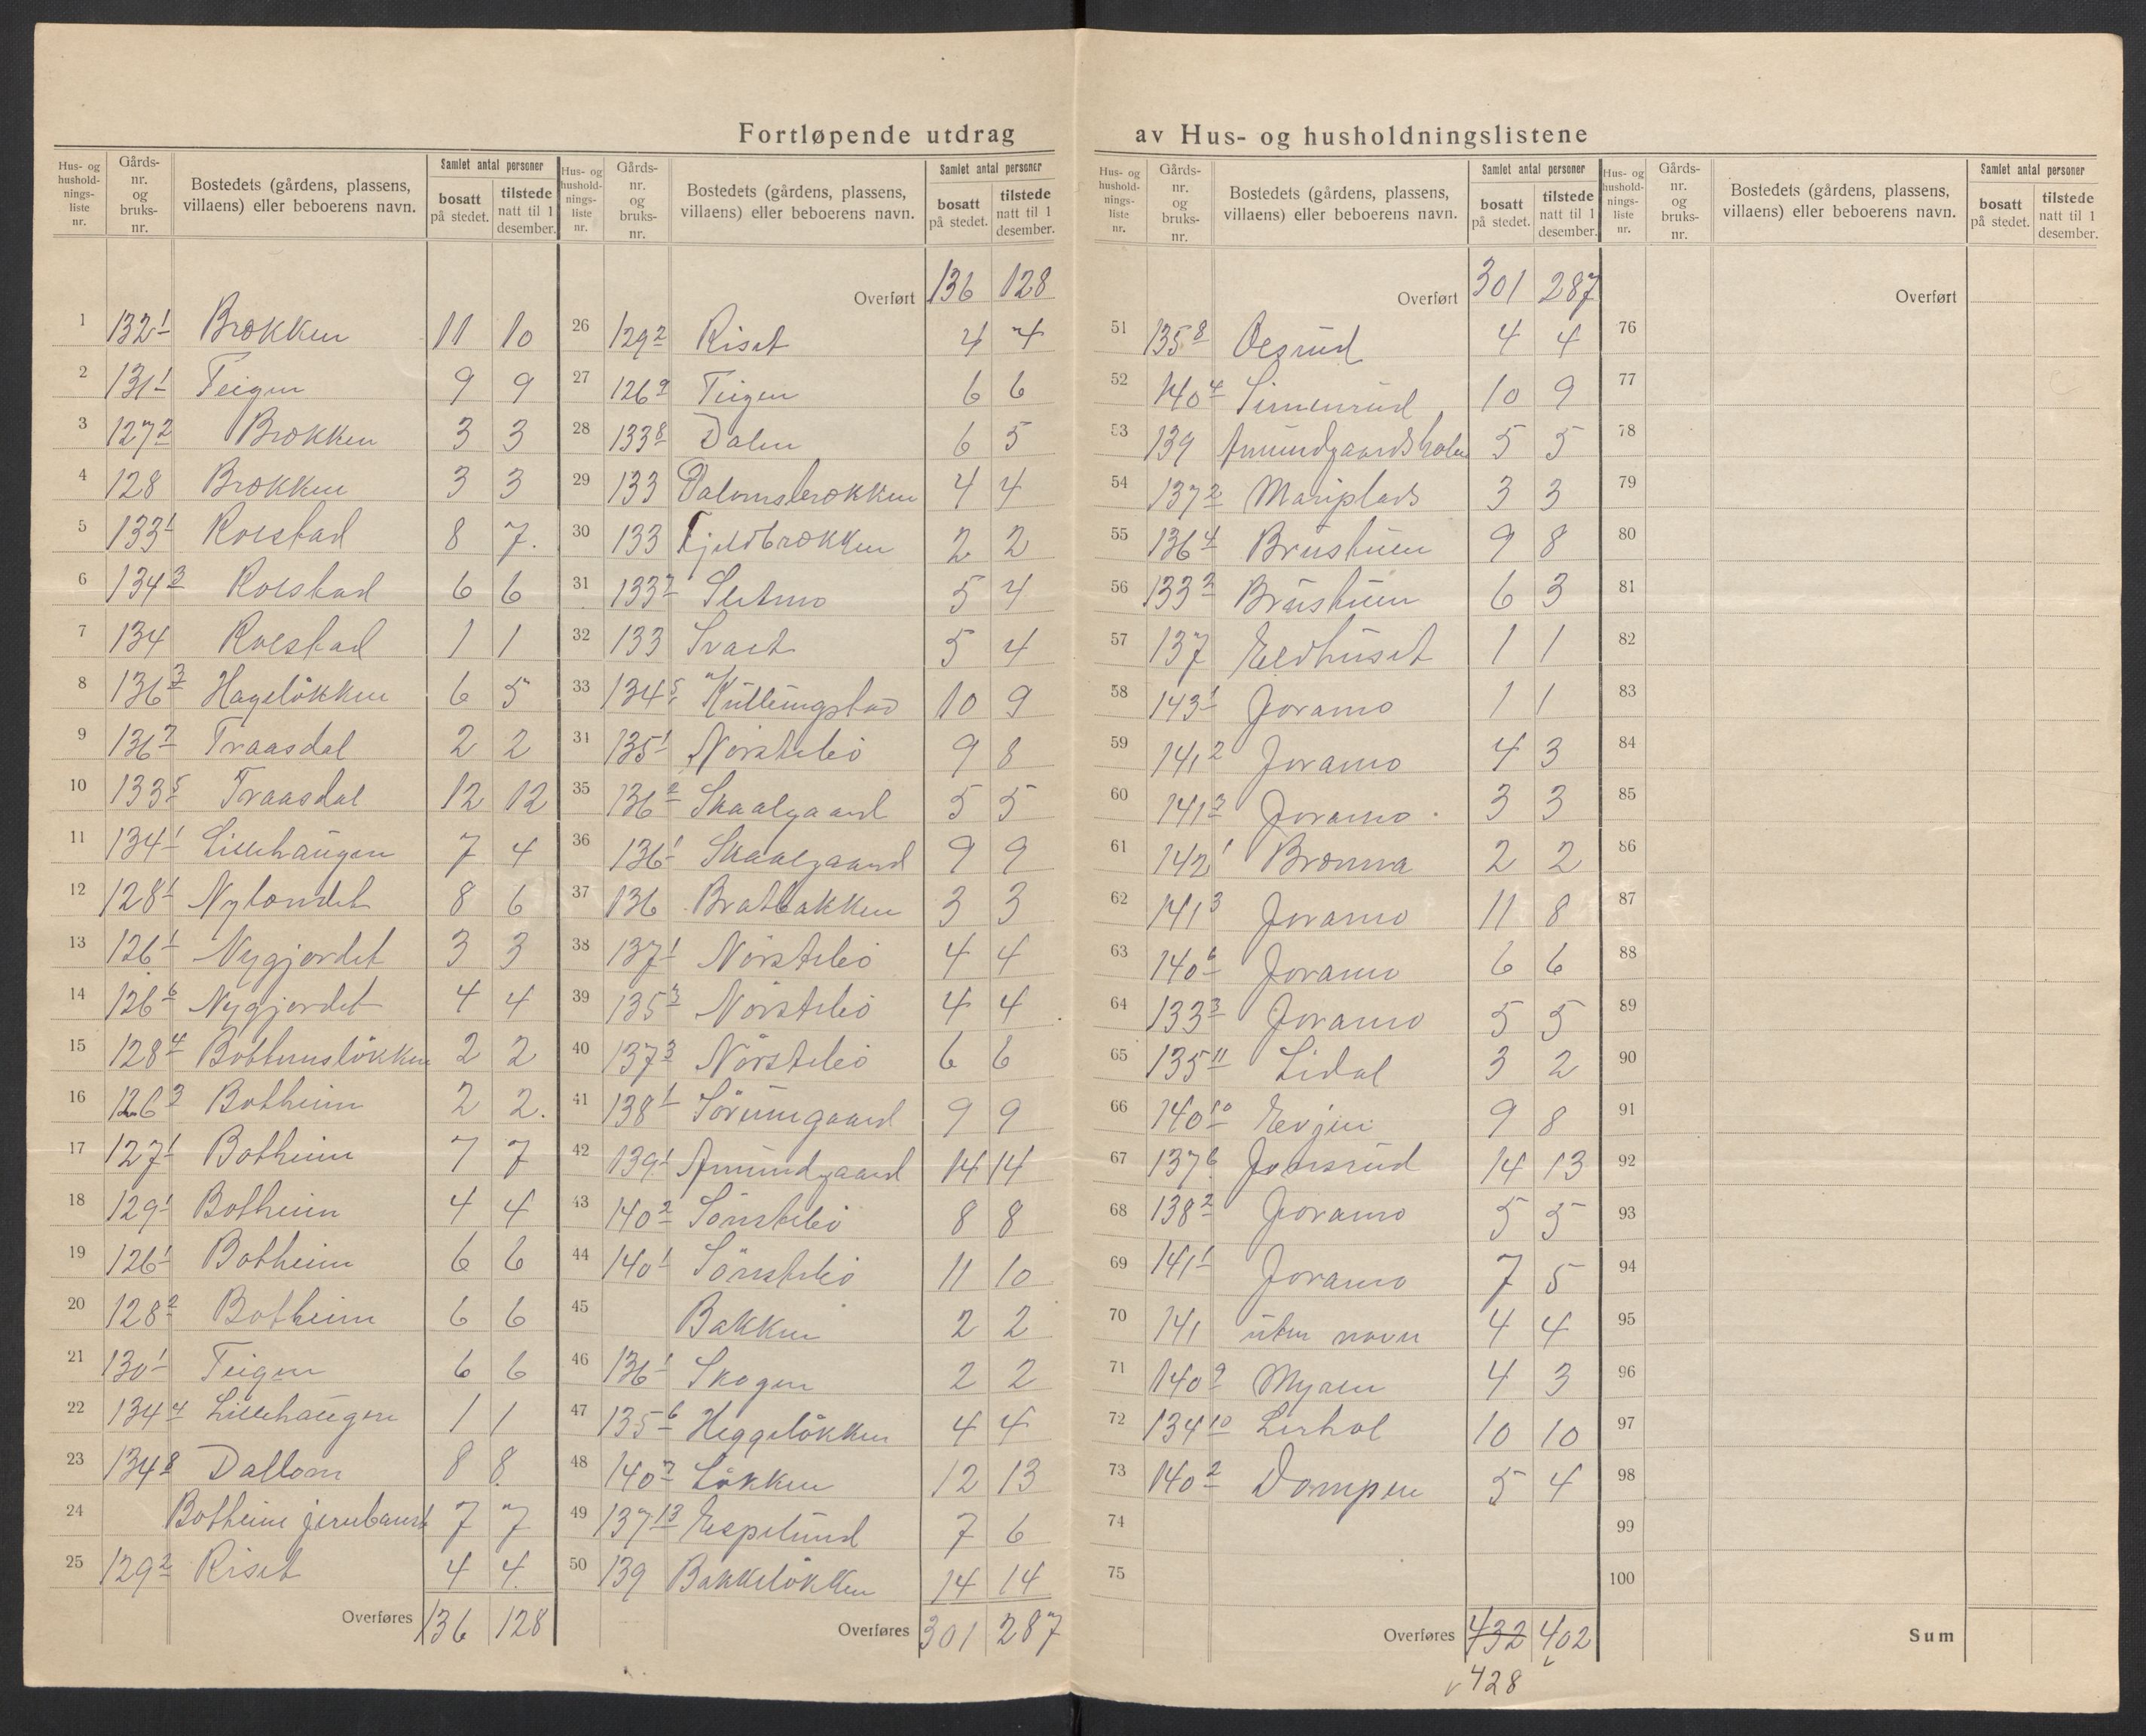 Fortløpende utdrag av Hus- og husholdningslistene
Hus- og husholdnings-liste nr. Gårds-nr. og bruks-nr. Bostedets (gårdens, plassens, villaens) eller beboerens navn. Samlet antal personer bosatt på stedet. tilstede natt til 1 desember.
1 132¹ Brokken 11 10
2 131¹ Teigen 9 9
3 127² Brokken 3 3
4 128 Brokken 3 3
5 133¹ Rolstad 8 7.
6 134³ Rolstad 6 6
7 134 Rolstad 1 1
8 136³ Hageløkken 6 5
9 136⁷ Traasdal 2 2
10 133⁵ Traasdal 12 12
11 134¹ Lillehaugen 7 4
12 128¹ Nylandet 8 6
13 126¹ Nygjordet 3 3
14 126⁶ Nygjordet 4 4
15 128⁴ Bottemsløkken 2 2
16 126³ Botheim 2 2.
17 127¹ Botheim 7 7
18 129¹ Botheim 4 4
19 126¹ Botheim 6 6
20 128² Botheim 6 6
21 130¹ Teigen 6 6
22 134⁴ Lillehaugen 1 1
23 134⁸ Dallom 8 8.
24 Botheim jernbanest 7 7
25 129² Riset 4 4.
Overføres 136 128
Hus- og husholdnings-liste nr. Gårds-nr. og bruks-nr. Bostedets (gårdens, plassens, villaens) eller beboerens navn. Samlet antal personer bosatt på stedet. tilstede natt til 1 desember.
Overført 136 128
26 129² Riset 4 4
27 126⁹ Teigen 6 6
28 133⁸ Dalen 6 5
29 133 Dalomsbrokken 4 4
30 133 Fjeldbrokken 2 2
31 133⁷ Sletmo 5 4
32 133 Svart 5 4
33 134⁵ Kullungstad 10 9
34 135¹ Nørstebø 9 8
35 136² Skaalgaard 5 5
36 136¹ Skaalgaard 9 9
37 136 Bratbakken 3 3
38 137¹ Nørstebø 4 4
39 135³ Nørstebø 4 4
40 137³ Nørstebø 6 6
41 138¹ Sørumgaard 9 9
42 139¹ Amundgaard 14 14
43 140² Sønstebø 8 8
44 140¹ Sønstebø 11 10
45 Bakken 2 2
46 136¹ Skogen 2 2
47 135⁶ Heggeløkken 4 4
48 140⁷ Løkken 12 13
49 137¹³ Espelund 7 6
50 139 Bakkeløkken 14 14
Overføres 301 287
Hus- og husholdnings-liste nr. Gårds-nr. og bruks-nr. Bostedets (gårdens, plassens, villaens) eller beboerens navn. Samlet antal personer bosatt på stedet. tilstede natt til 1 desember.
Overført 301 287
51 135⁸ 4 4
52 140⁴ Simenrud 10 9
53 139 Amundgaardshole 5 5
54 137² Mariplads 3 3
55 136⁴ Brustuen 9 8
56 133² Brustuen 6 3
57 137 Eldhuset 1 1
58 143¹ Joramo 1 1
59 141² Joramo 4 3
60 141³ Joramo 3 3
61 142¹ Bronna 2 2
62 141³ Joramo 11 8
63 140⁶ Joramo 6 6
64 133³ Joramo 5 5
65 135¹¹ Lidal 3 2
66 140¹⁰ Evjen 9 8
67 137⁶ Jonsrud 14 13
68 138² Joramo 5 5
69 141¹ Joramo 7 5
70 141 uten navn 4 4
71 140⁹ Myren 4 3
72 134¹⁰ Lirhol 10 10
73 140² Dompen 5 4
74
75
Overføres 432 402
428
Hus- og husholdnings-liste nr. Gårds-nr. og bruks-nr. Bostedets (gårdens, plassens, villaens) eller beboerens navn. Samlet antal personer bosatt på stedet. tilstede natt til 1 desember.
Overført
76
77
78
79
80
81
82
83
84
85
86
87
88
89
90
91
92
93
94
95
96
97
98
99
100
Sum